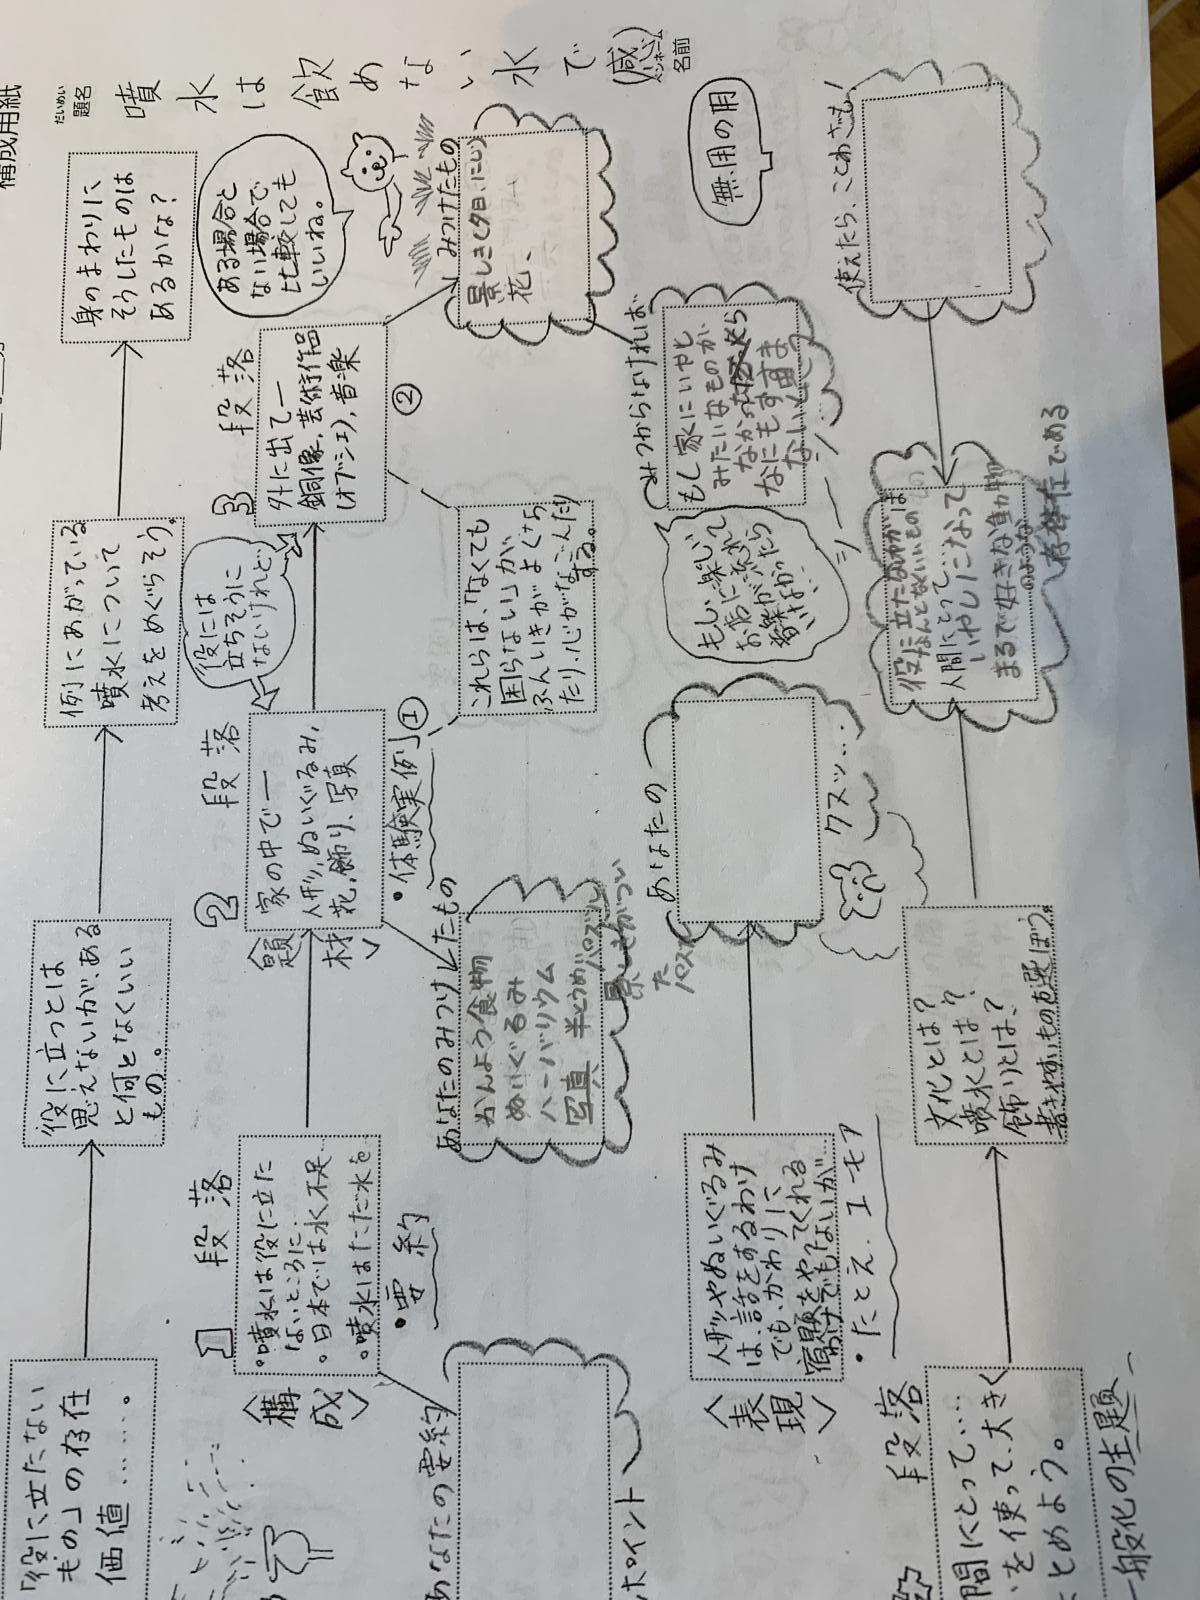 構成用紙
だいめい
題名
噴水は飲めない水で(感)
ペンネーム
名前
「役に立たない
もの」の存在
価値……。
役に立つとは
思えないが、ある
と何となくいい
もの。
例にあがっている
噴水について
考えをめぐらそう。
身のまわりに
そうしたものは
あるかな?
ある場合と
ない場合で
比較しても
いいね。
1 段落
2 段落
3 段落
役には
立ちそうに
ないけれど
〈構成〉
・噴水は役に立た
ないところに…
・日本では水不足…
・噴水はただ水を
・要約
〈題材〉
家の中で―
人形、ぬいぐるみ、
花、飾り、写真
・体験実例①
外に出て―
銅像、芸術作品
(オブジェ)、音楽
②
あなたの要約
ポイント
あなたのみつけたもの
かんよう食物
ぬいぐるみ
ハーバリウム
写真 半とうめいパズル
景しきがつい
た
パズル
これらは、「なくても
困らない」が、
ふんいきがよくなっ
たり、心がなごんだり
する。
みつけたもの
景しき(夕日、にじ)
花、
無用の用
〈表現〉
人形やぬいぐるみ
は、話をするわけ
でも、かわりに、
宿題をやってくれる
わけでもないが…
・たとえ、ユーモア
あなたの
クスッ…
もし、楽しい
お店に流れて
音楽がなかったら
いま
シーン…
みつからなければ
もし家にいやし
みたいなものが
なかったら
なにも
ない
段落
人間にとって…
を使って、大きく
まとめよう。
一般化の主題
文化とは?
噴水とは?
飾りとは?
書きやすいものを選ぼう。
役に立たないものは
なんとなく
人間にとって、
いやしになって
まるで好きな動物
のような
存在である
使えたら、ことわざも!